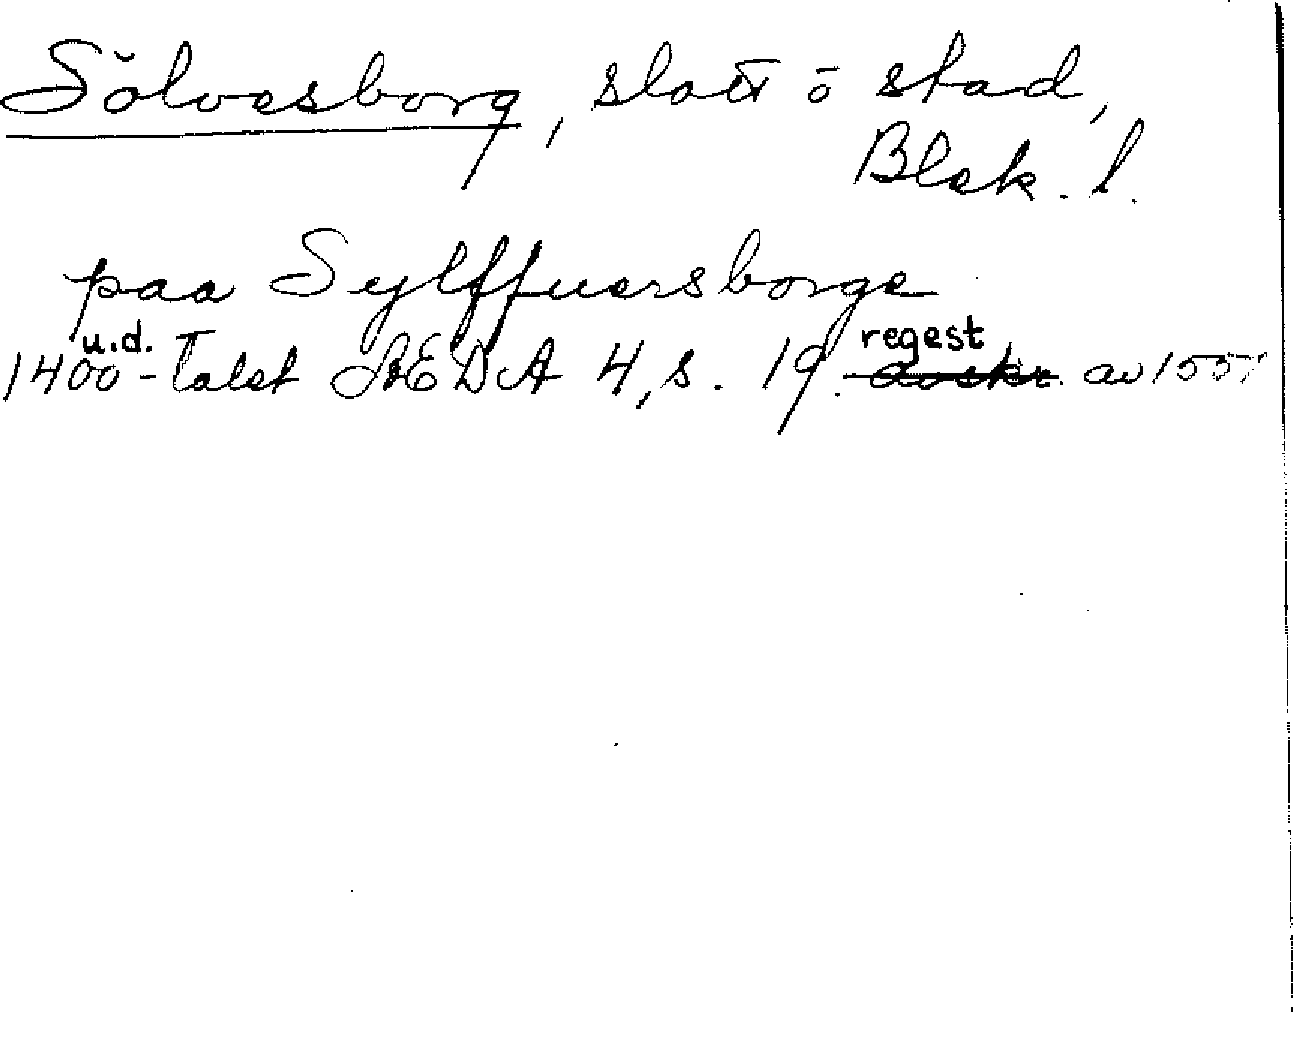 Sölvesborg, slott o stad,
Blek. l.
paa Sylffuersborge
u.d. regest
1400-talet ÆDA 4, s. 19. avskr. av 1551